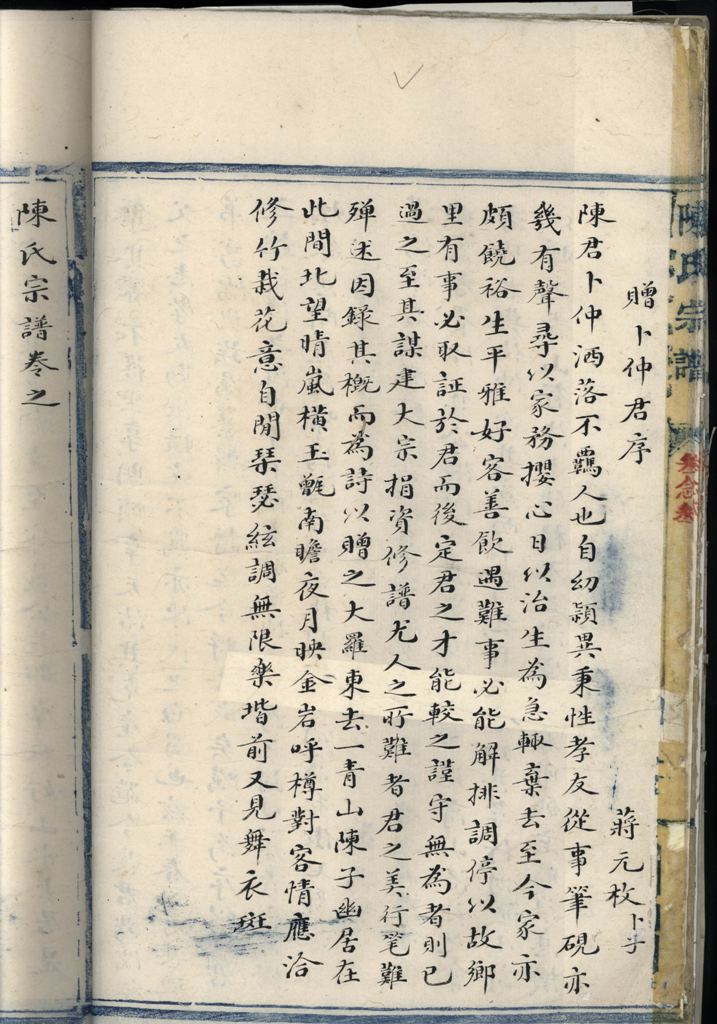 贈卜仲君序
蔣元枚卜子
陳君卜仲洒落不羈人也自幼頴異秉性孝友從事筆硯亦
幾有聲尋以家務攖心日以治生為急輙棄去至今家亦
頗饒裕生平雅好客善飲遇難事必能解排調停以故鄉
里有事必取証於君而後定君之才能較之謹守無為者則已
過之至其謀建大宗捐資修譜尤人之所難者君之美行笔難
殫述因錄其概而為詩以贈之大羅東去一青山陳子幽居在
此間北望晴嵐橫玉甑南瞻夜月映金岩呼樽對客情應洽
修竹栽花意自閒琹瑟絃調無限樂堦前又見舞衣斑
陳氏宗譜卷之
陳氏宗譜